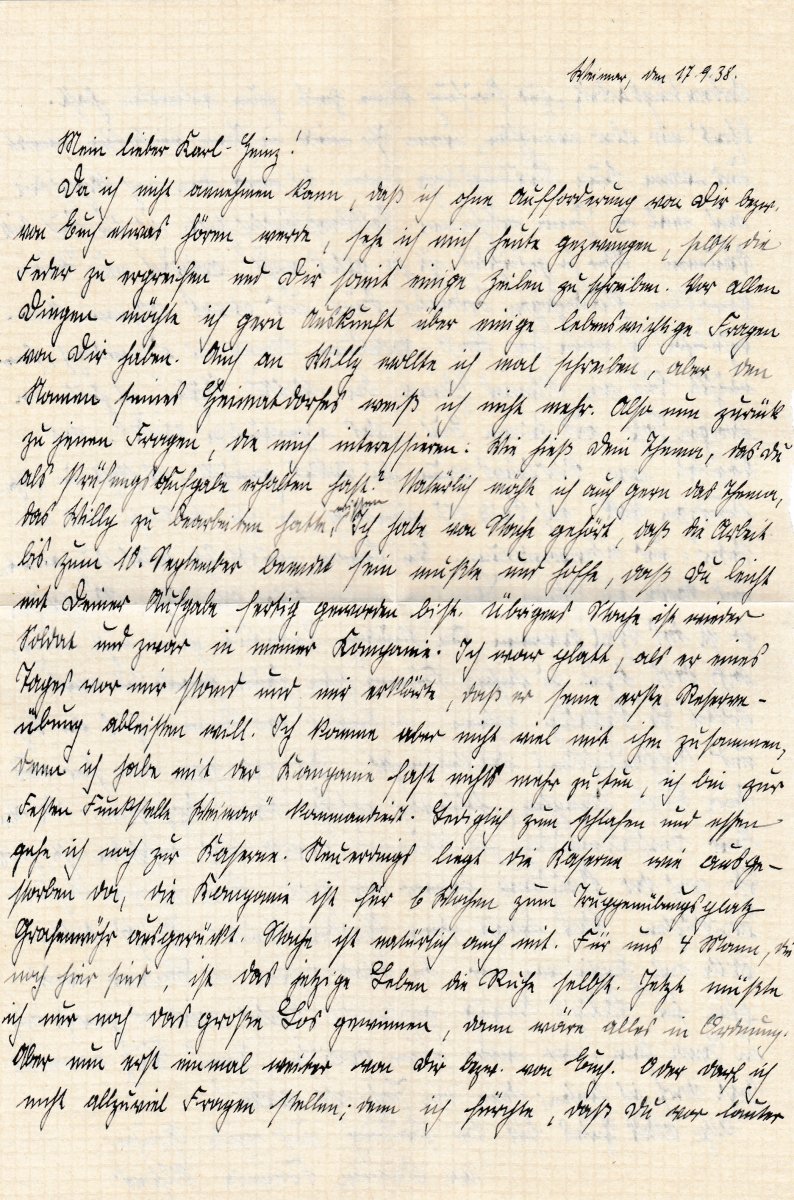 Weimar, den 17.9.38.
Mein lieber Karl-Heinz!
Da ich nicht annehmen kann, daß ich ohne Aufforderung von Dir bezw.
von Euch etwas hören werde, sehe ich mich heute gezwungen, selbst die
Feder zu ergreifen und Dir somit einige Zeilen zu schreiben. Vor allen
Dingen möchte ich gern Auskunft über einige lebenswichtige Fragen
von Dir haben. Auch an Willy wollte ich mal schreiben, aber den
Namen seines Heimatdorfes weiß ich nicht mehr. Also nun zurück
zu jenen Fragen, die mich interessieren: Wie hieß Dein Thema, das Du
als Prüfungsaufgabe erhalten hast? Natürlich möchte ich auch gern das Thema,
das Willy zu bearbeiten hatte, wissen. Ich habe von Nache gehört, daß die Arbeit
bis zum 10. September beendet sein mußte und hoffe, daß Du leicht
mit Deiner Aufgabe fertig geworden bist. Übrigens Nache ist wieder
Soldat und zwar in meiner Kompanie. Ich war platt, als er eines
Tages vor mir stand und mir erklärte, daß er seine erste Reserve-
übung ableisten will. Ich komme aber nicht viel mit ihm zusammen,
denn ich habe mit der Kompanie fast nichts mehr zu tun, ich bin zur
„Festen Funkstelle Weimar" kommandiert. Lediglich zum schlafen und essen
gehe ich noch zur Kaserne. Neuerdings liegt die Kaserne wie ausge-
storben da, die Kompanie ist für 6 Wochen zum Truppenübungsplatz
Grafenwöhr ausgerückt. Nache ist natürlich auch mit. Für uns 4 Mann, die
noch hier sind, ist das jetzige Leben die Ruhe selbst. Jetzt müßte
ich nur noch das große Los gewinnen, dann wäre alles in Ordnung.
Aber nun erst einmal weiter von Dir bezw. von Euch. Oder darf ich
nicht allzuviel Fragen stellen; denn ich fürchte, daß Du vor lauter